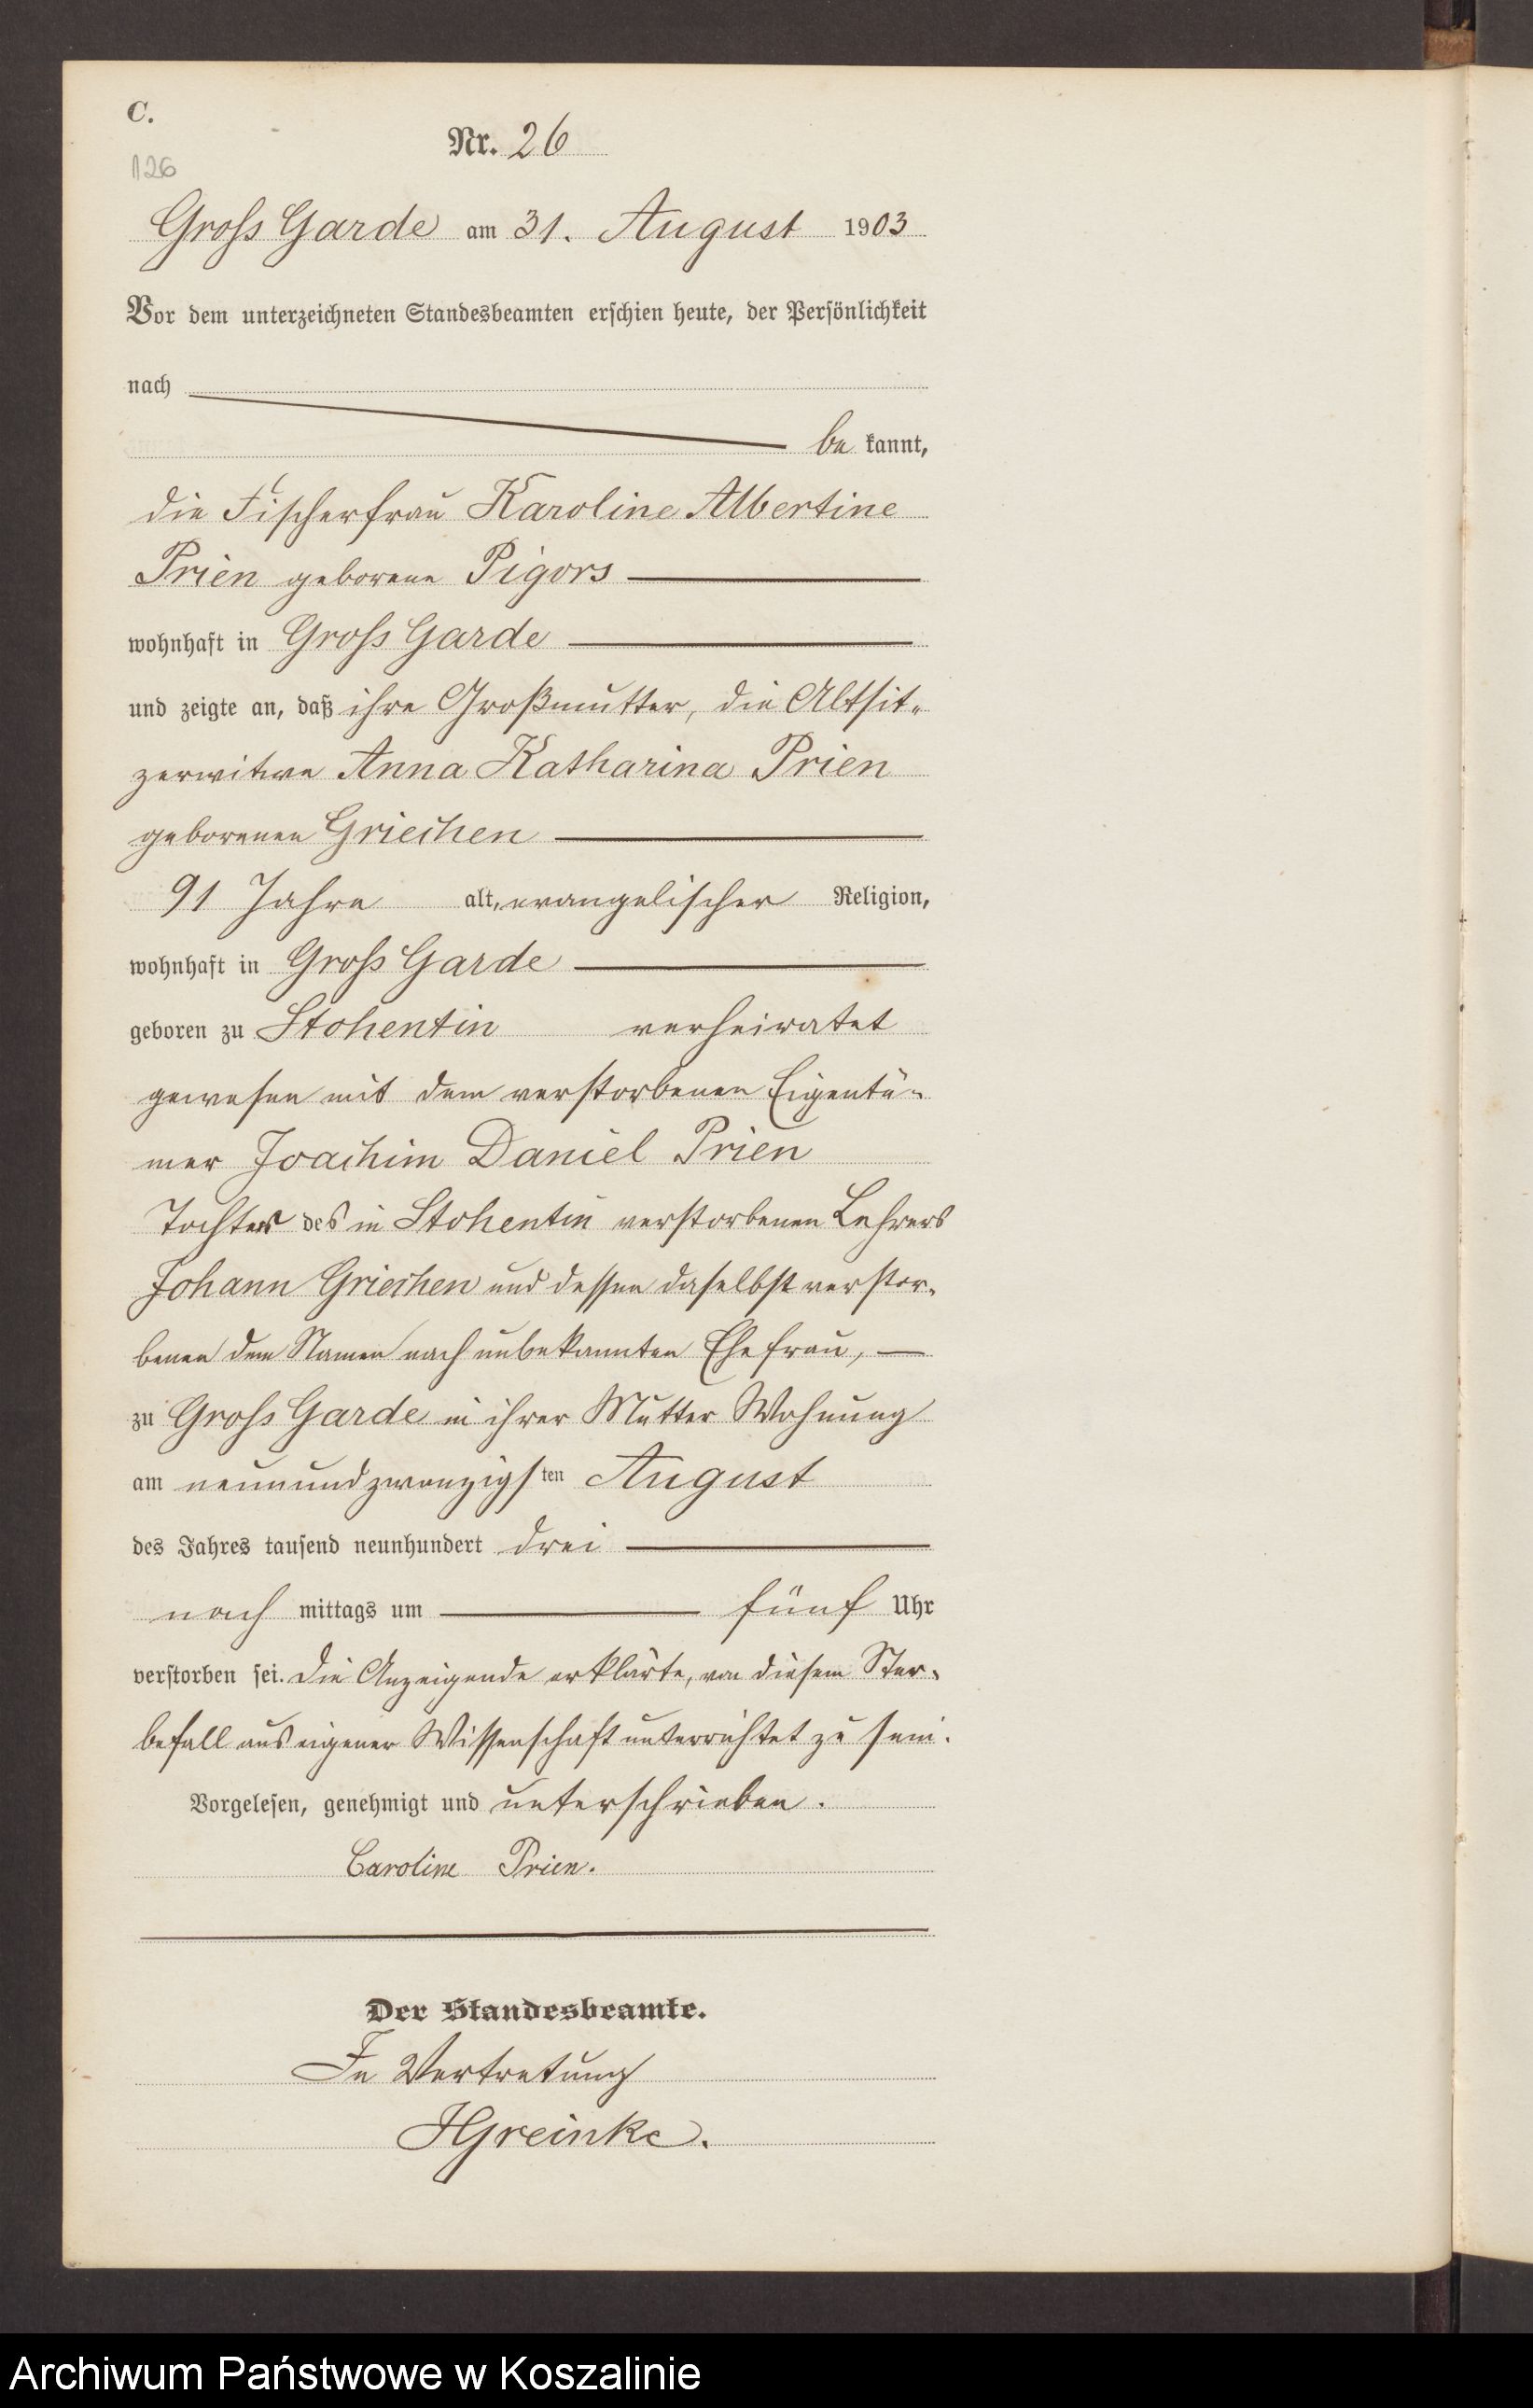 C.
Nr. 26
126
Gross Garde am 31. August 1903
Vor dem unterzeichneten Standesbeamten erschien heute, der Persönlichkeit
nach
be kannt,
die Fischerfrau Karoline Albertine
Prien geborene Pigors
wohnhaft in Gross Garde
und zeigte an, daß ihre Großmutter, die Altsit-
zerwitwe Anna Katharina Prien
geborenen Griechen
91 Jahre alt, evangelischer Religion,
wohnhaft in Gross Garde
geboren zu Stohentin verheiratet
gewesen mit dem verstorbenen Eigentü-
mer Joachim Daniel Prien
Tochter des in Stohentin verstorbenen Lehrers
Johann Griechen und dessen daselbst verstor-
benen dem Namen nach unbekannten Ehefrau,
zu Gross Garde in ihrer Mutter Wohnung
am neunundzwanzigsten August
des Jahres tausend neunhundert drei
nach mittags um fünf Uhr
verstorben sei. Die Anzeigende erklärte, von diesem Ster-
befall aus eigener Wissenschaft unterrichtet zu sein.
Vorgelesen, genehmigt und unterschrieben.
Caroline Prien.
Der Standesbeamte.
In Vertretung
HGreinke.
Archiwum Państwowe w Koszalinie